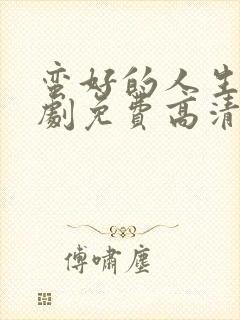 蛮好的人生
劇免费高清
傅啸塵